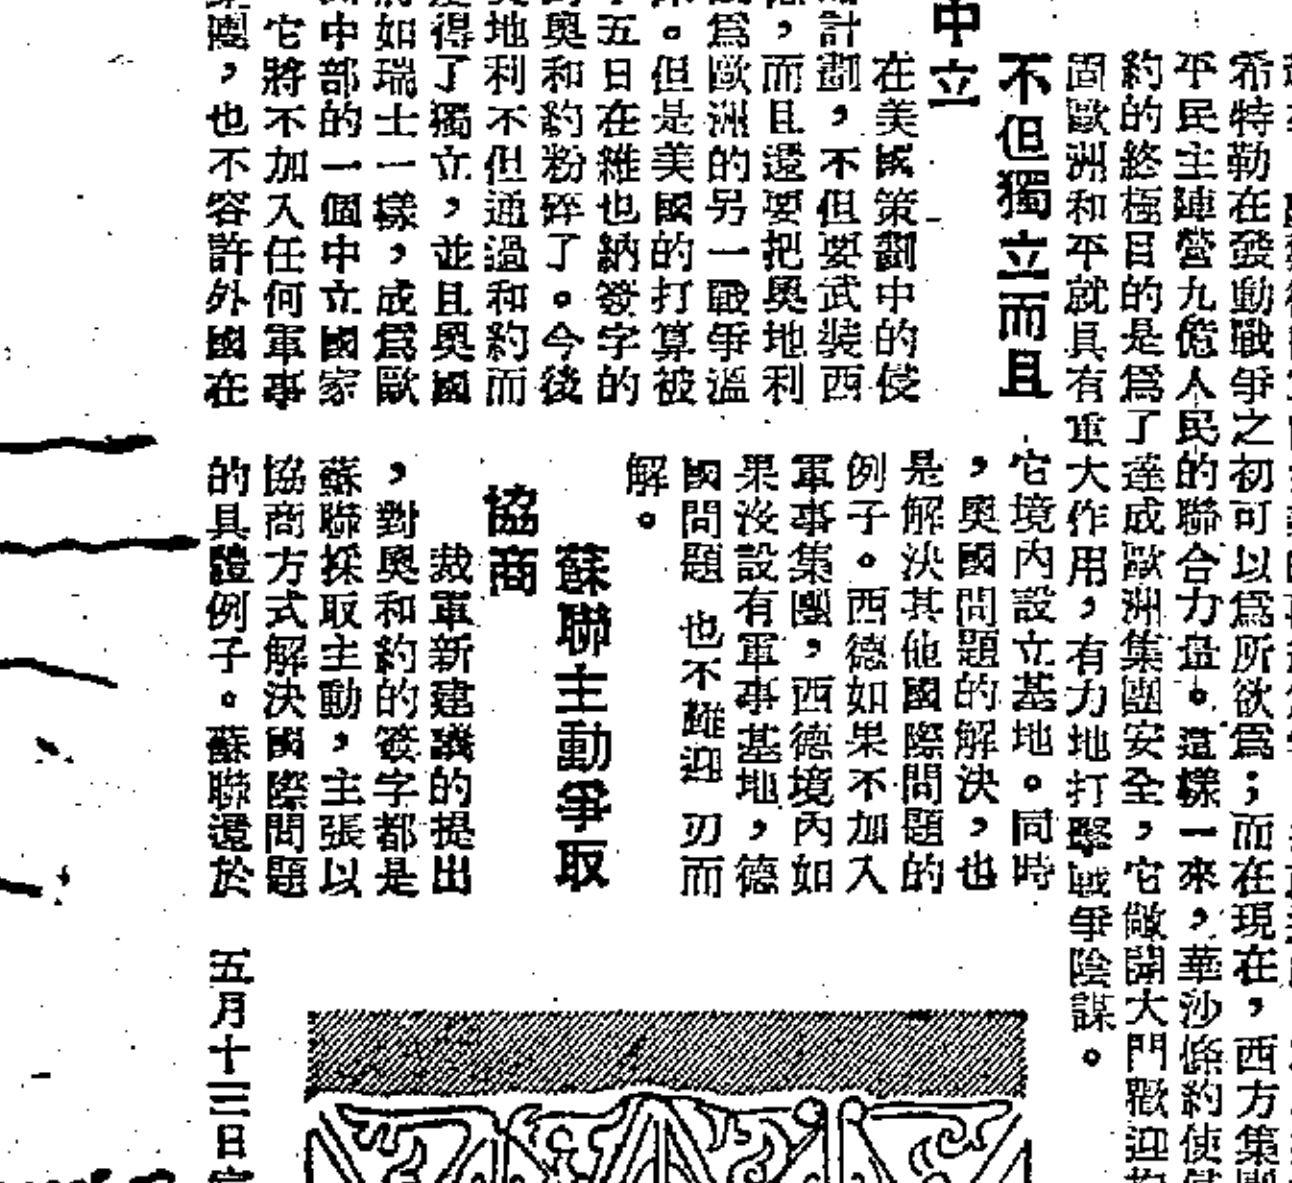 希特勒在發動戰爭之初可以爲所欲爲；而在現在，西方集團
平民主陣營九億人民的聯合力量。這樣一來，華沙條約使
約的終極目的是爲了達成歐洲集團安全，它敞開大門歡迎
固歐洲和平就具有重大作用，有力地打擊戰爭陰謀。
不但獨立而且
中立
在美國策劃中的侵
計劃，不但要武裝西
，而且還要把奧地利
爲歐洲的另一戰爭溫
。但是美國的打算被
五日在維也納簽字的
奧和約粉碎了。今後
地利不但通過和約而
得了獨立，並且奧國
如瑞士一樣，成爲歐
中部的一個中立國家
它將不加入任何軍事
團，也不容許外國在
它境內設立基地。同時
，奧國問題的解決，也
是解決其他國際問題的
例子。西德如果不加入
軍事集團，西德境內如
果沒設有軍事基地，德
國問題 也不難迎刃而
解。
蘇聯主動爭取
協商
裁軍新建議的提出
，對奧和約的簽字都是
蘇聯採取主動，主張以
協商方式解決國際問題
的具體例子。蘇聯還於
五月十三日